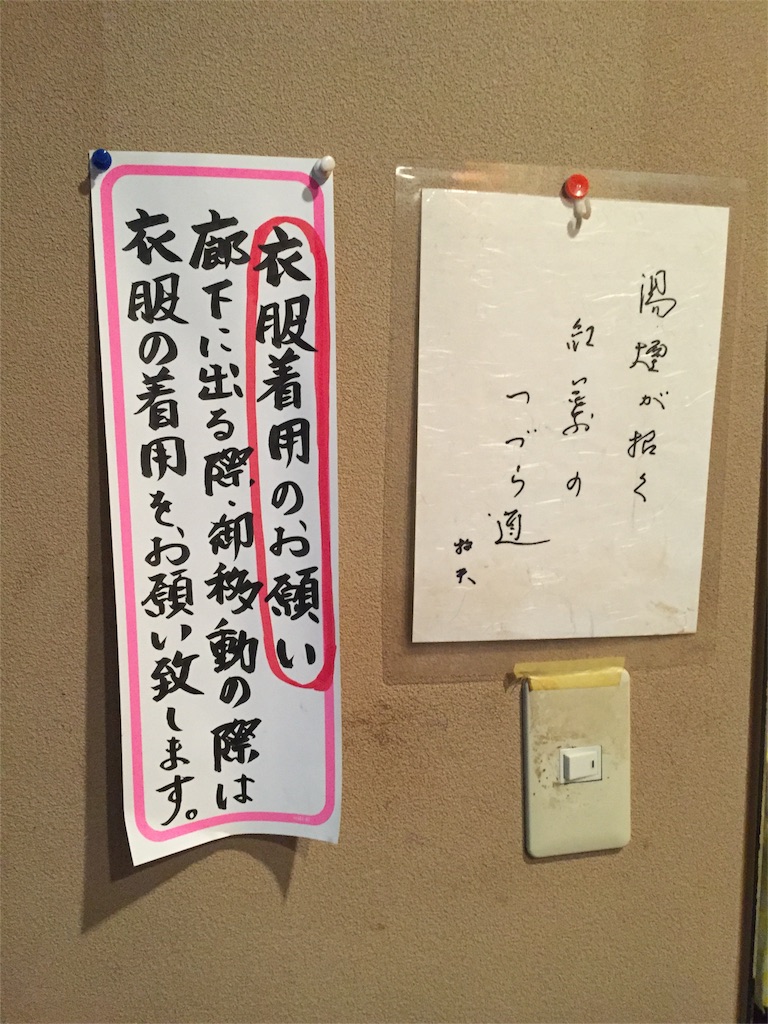 衣服着用のお願い
廊下に出る際・御移動の際は
衣服の着用を、お願い致します。
湯煙が招く
紅葉の
つづら道